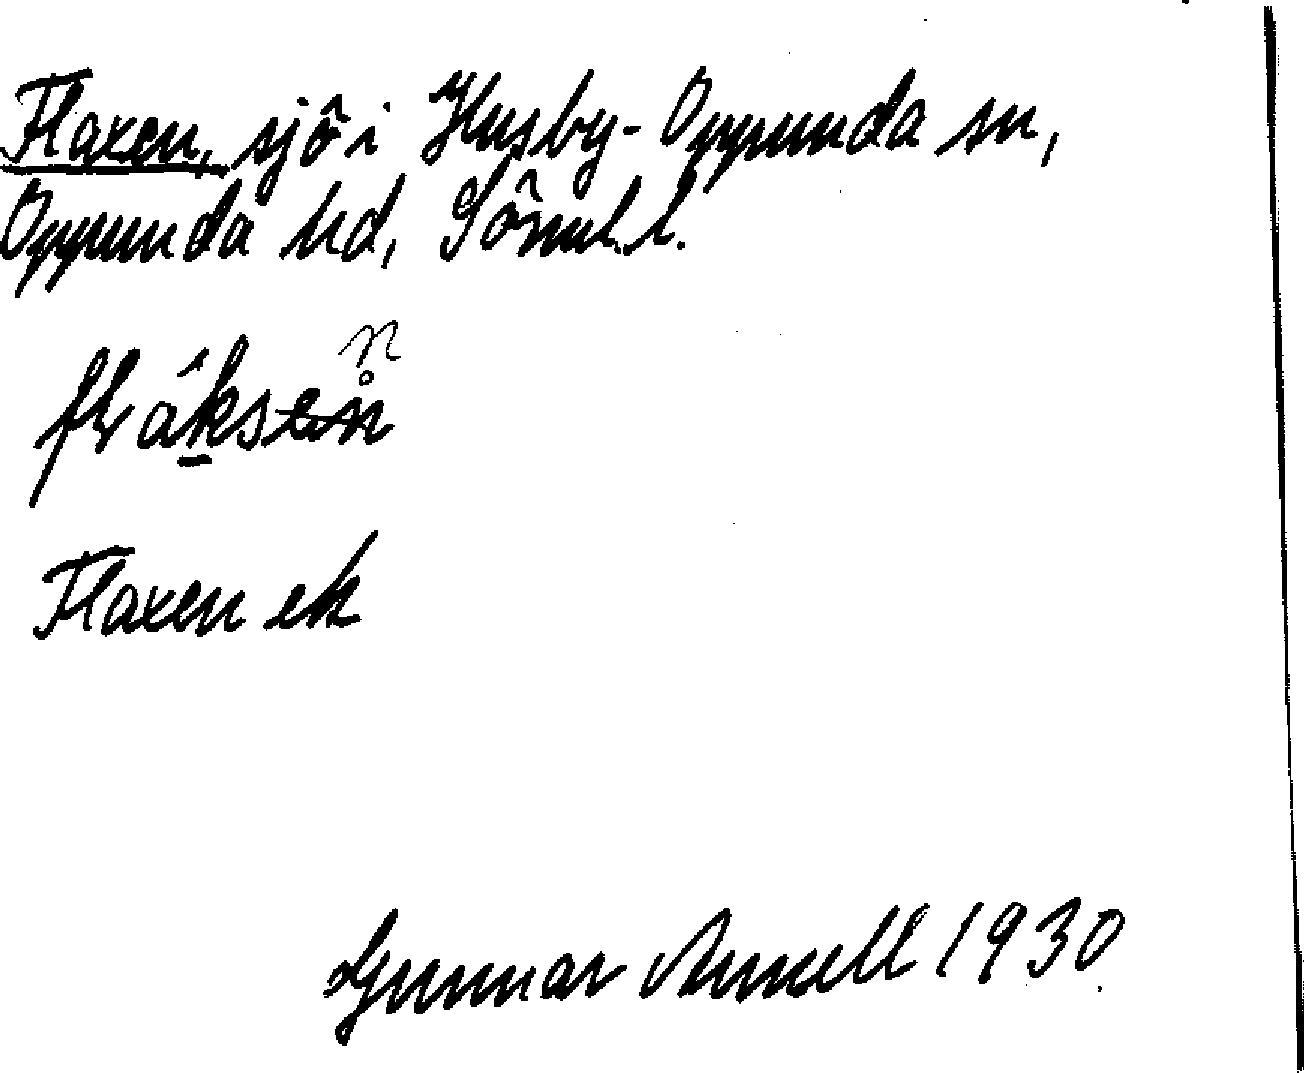 Flaxen, sjö i Husby-Oppunda sn,
Oppunda hd, Sörml. l.
Flaxen ek
Gunnar 1930